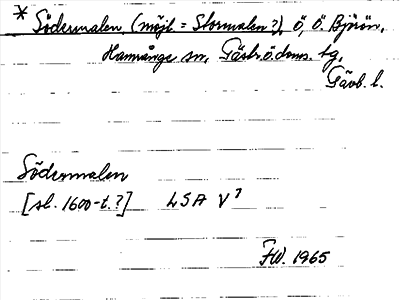 * Södermalen (möjl. = Stormalen?), ö, Ö. Björön,
Hamrånge sn, Gästr. ö. doms. tg,
Gävb. l.
Södermalen
[sl. 1600-t.?] LSA V?
FW. 1965